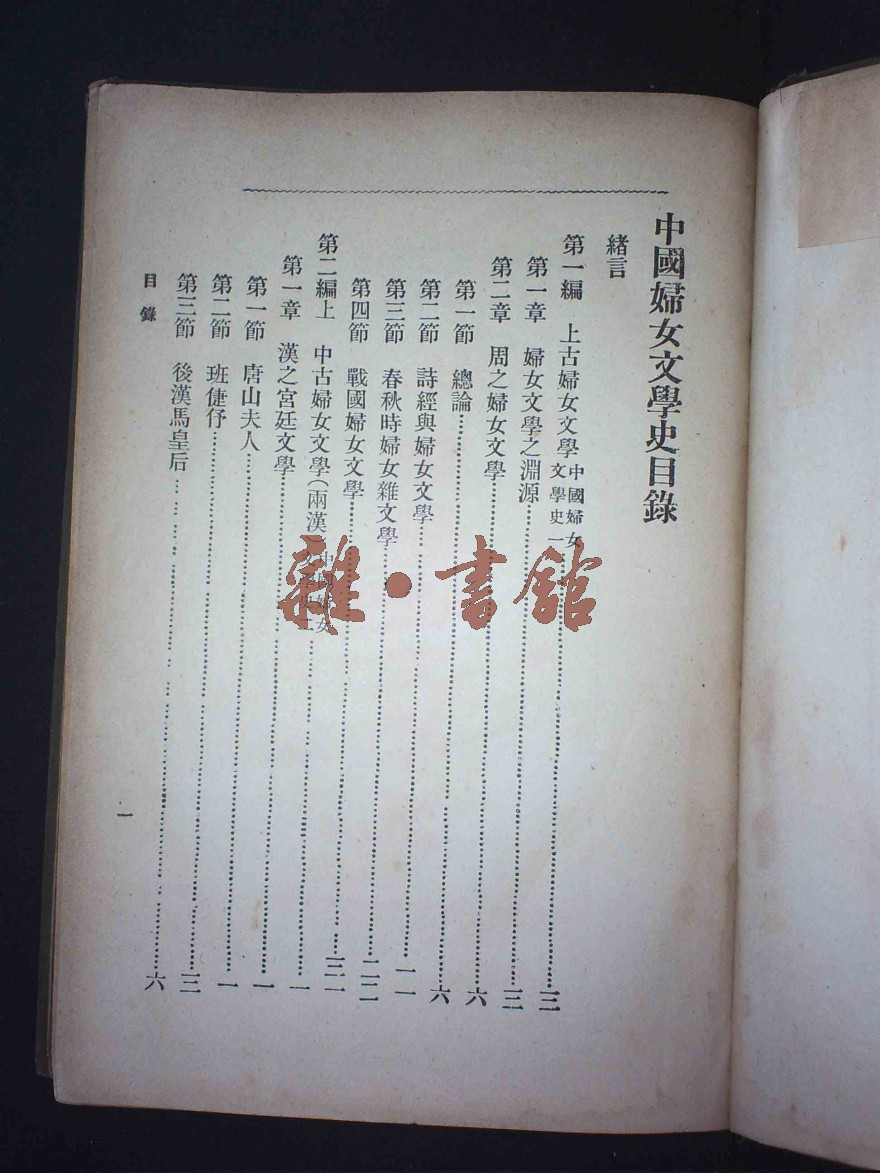 中國婦女文學史目錄
緒言
第一編 上古婦女文學 中國婦女文學史一……三
第一章 婦女文學之淵源……三
第二章 周之婦女文學……六
第一節 總論……六
第二節 詩經與婦女文學……一一
第三節 春秋時婦女雜文學……二二
第四節 戰國婦女文學……三一
第二編上 中古婦女文學(兩漢) 中國婦女文學史二……一
第一章 漢之宮廷文學……一
第一節 唐山夫人……一
第二節 班倢伃……三
第三節 後漢馬皇后……六
目錄
一
雜·書館